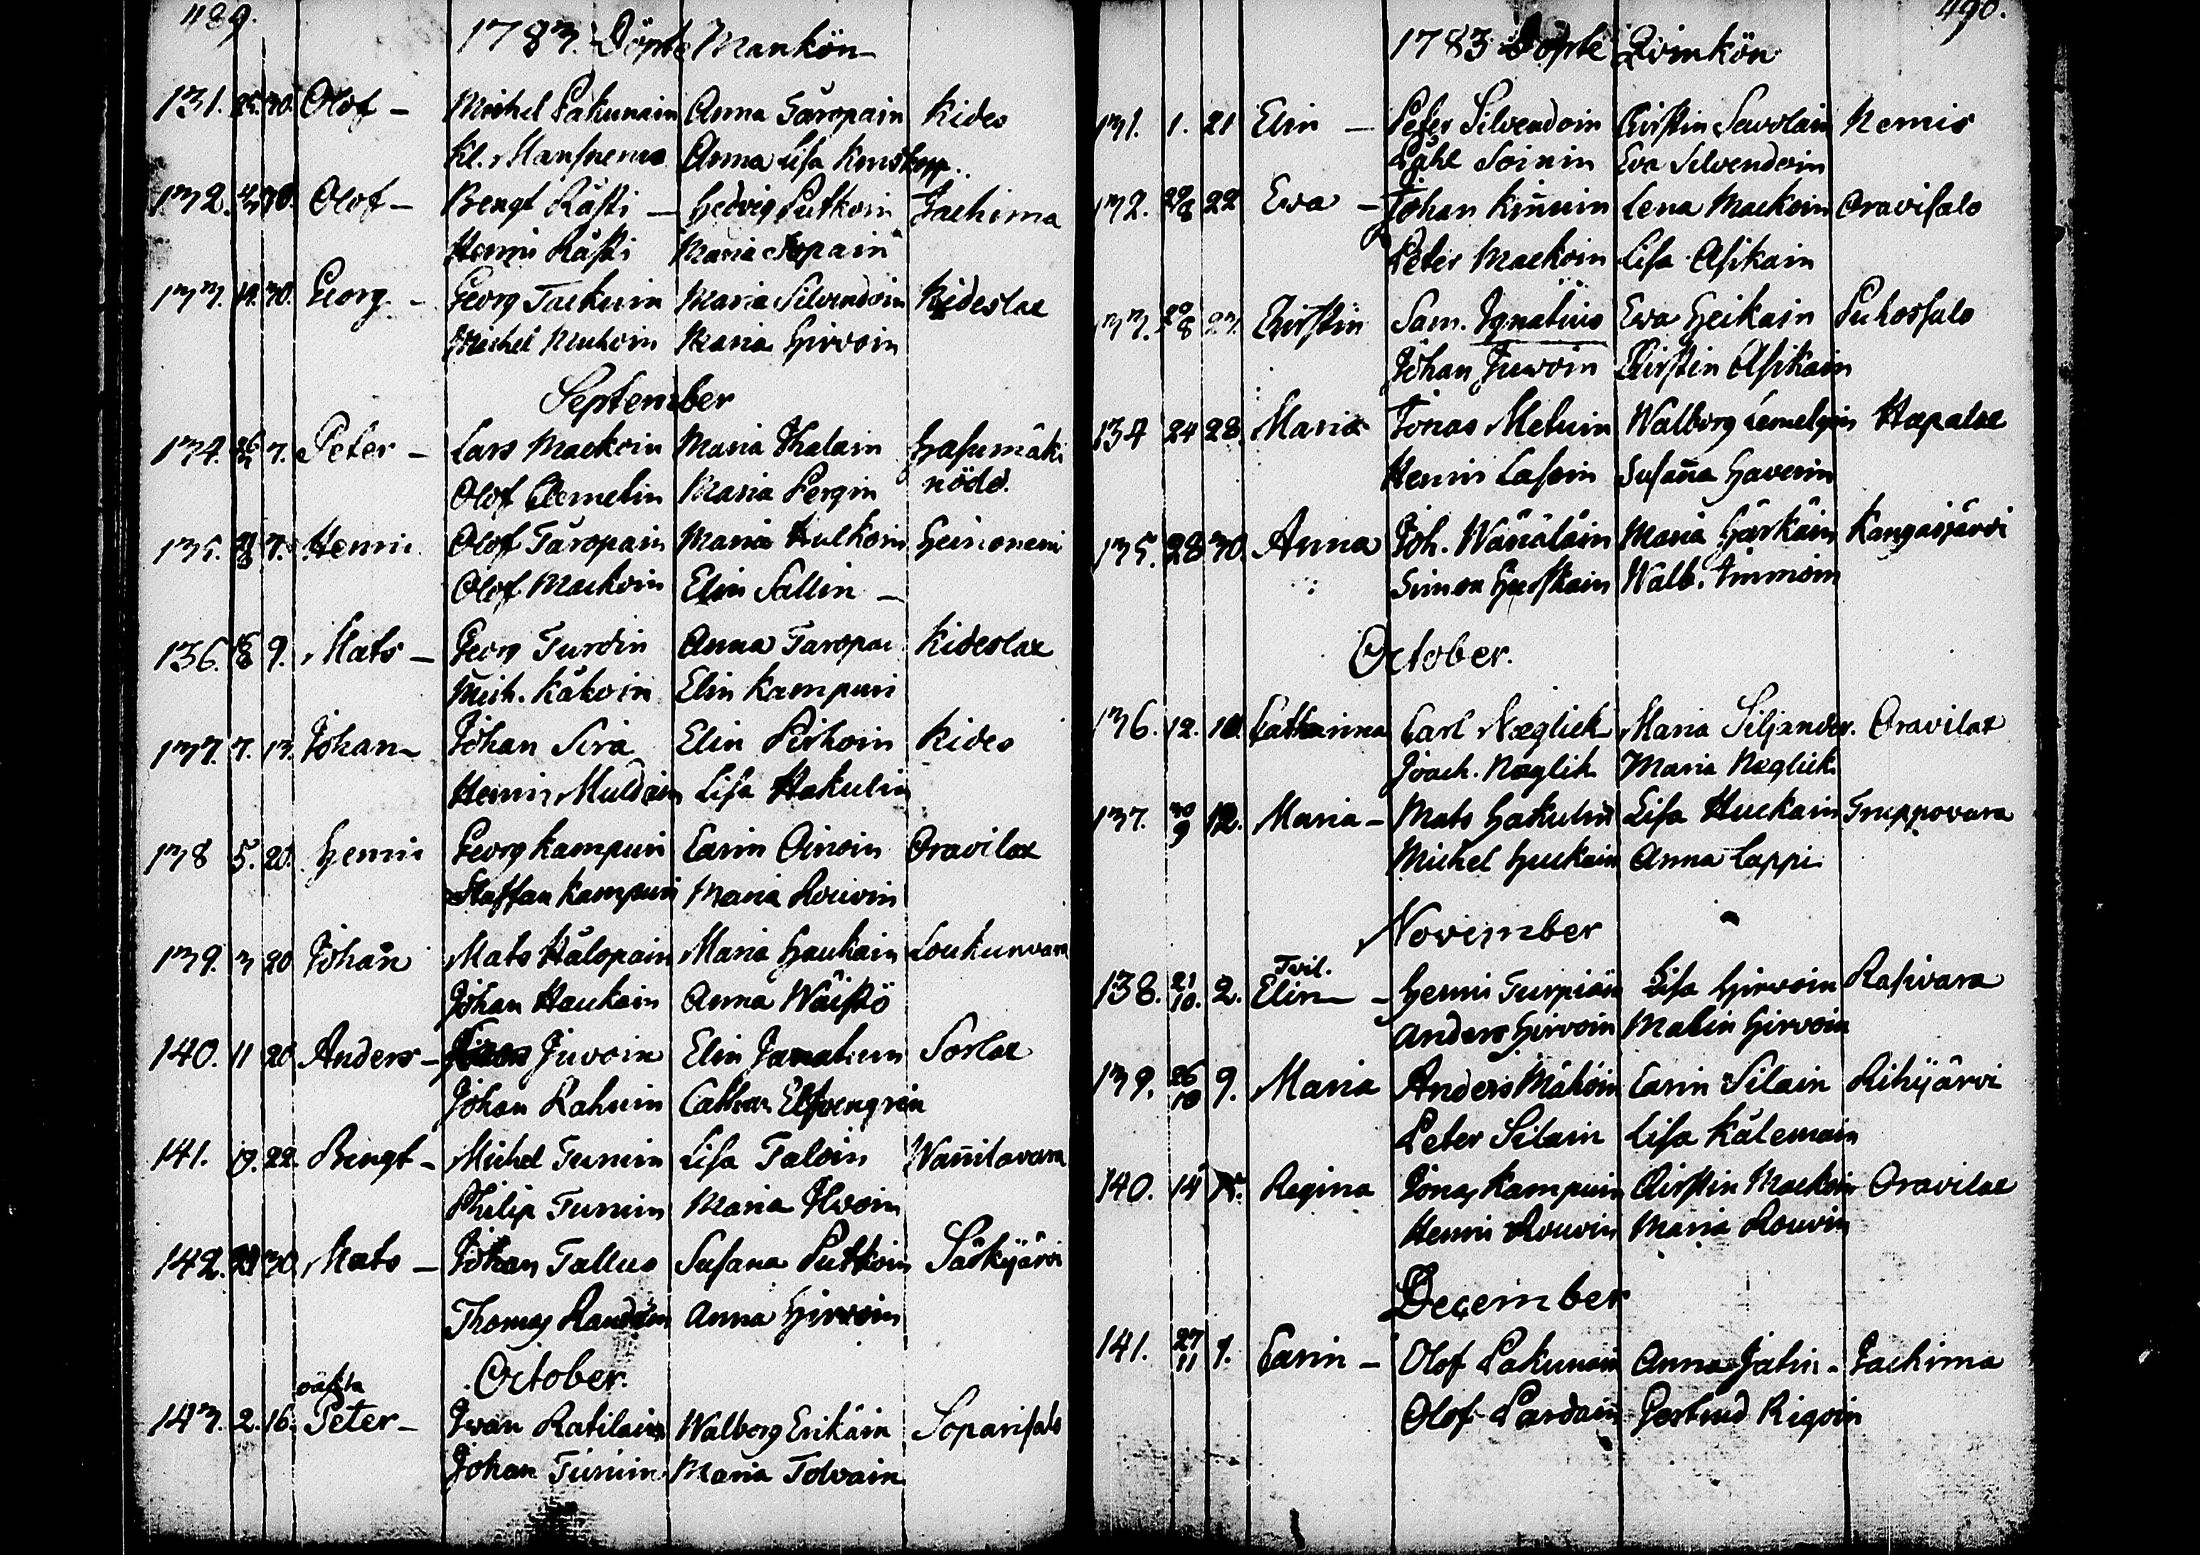 489.
1783. Döpte Mankön
131. 25. 30. Olof - Michel Pakunain Anna Taropain Kides
Kl. Mansnerus Anna Lisa
132. 30. Olof - Bengt Rästi - Hedvig Putkoin Jachima
Henric Rästi Maria
133. 19. 30. Georg - Georg Taskuin Maria Silvendoin Kideslax
Michel Muhoin Maria Hirvoin
September
134. 7. Peter - Lars Mackoin Maria Ihalain Hasumäki
Olof Clemetin Maria Pergin nöds.
135. 7. Henric Olof Taropain Maria Hulkoin Heinonemi
Olof Mackoin Elin Sallin -
136. 9. Mats - Georg Turoin Anna Taropai Kideslax
Mich. Käkoin Elin Kampuri
137. 7. 13. Johan - Johan Sira Elin Pirhoin Kides
Henric Muldain Lisa Hakulin
138 5. 20. Henric Georg Kampuri Carin Oinoin Oravilax
Staffan Kampuri Maria Rouvin
139. 3 20 Johan Mats Hälopain Maria Haukain Loukunvara
Johan Haukain Anna Wäistö
140. 11 20 Anders - Juvoin Elin Sorlax
Johan Rahuin Cathar.
141. 19. 22. Bengt - Michel Turuin Lisa Taloin Wänilavara
Philip Turuin Maria Ilvoin
142. 30 Mats - Johan Tallus Susana Putkoin Särkijärvi
Thomas Anna Hirvoin
October.
oäkta
143. 2. 16. Peter - Ivan Ratilain Walborg Erikäin Soparisalo
Johan Turuin Maria Tolvain
490.
1783 Döpte Qvinkön
131. 1. 21 Elin - Peter Silvendoin Kirstin Savolain Nemis
Påhl Soinin Eva Silvendoin
132. 29/8 22 Eva - Johan Kinnuin Lena Mackoin Oravisalo
Peter Mackoin Lisa Asikain
133. 29/8 23. Kirstin Sam. Ignatius Eva Heikain Puhossalo
Johan Juvoin Kirstin Asikain
134 24 28 Maria Jonas Meluin Walborg Hapalax
Henric Lassin Susaña Haverin
135. 28 30. Anna Joh. Wänäläin Maria Härkäin Kangasjärvi
Simon Hurskain Walb. Immoin
October.
136. 12. Catharina Carl Næglick Maria Siljander. Oravilax
Joach. Næglick Maria Næglick
137. 30/9 12. Maria - Mats Hakulin Lisa Huckain Truppovara
Michel Huckain Anna Lappi
November
Tvil.
138. 21/10. 2. Elin - Henric Turpiäin Lisa Hirvoin Rasivara
Anders Hirvoin Malin Hirvoin
139. 26/10 9. Maria Anders Mähöin Carin Silain Rihijärvi
Peter Silain Lisa Kälemain
140. 14 Regina Jonas Kampuin Kirstin Mackoin Oravilax
Henric Rouvin Maria Rouvin
December
141. 27/11 7. Carin - Olof Pakunain Anna Jatin - Jachima
Olof Pardain Gertrud Rigoin